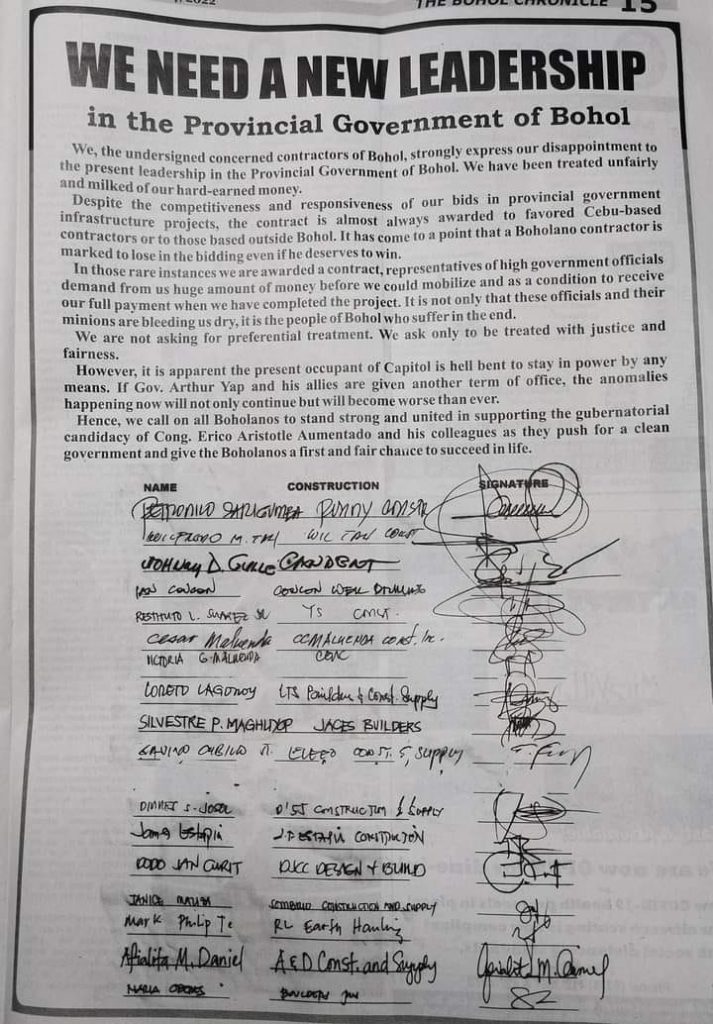 , 2022
THE BOHOL CHRONICLE 15
WE NEED A NEW LEADERSHIP
in the Provincial Government of Bohol
We, the undersigned concerned contractors of Bohol, strongly express our disappointment to
the present leadership in the Provincial Government of Bohol. We have been treated unfairly
and milked of our hard-earned money.
Despite the competitiveness and responsiveness of our bids in provincial government
infrastructure projects, the contract is almost always awarded to favored Cebu-based
contractors or to those based outside Bohol. It has come to a point that a Boholano contractor is
marked to lose in the bidding even if he deserves to win.
In those rare instances we are awarded a contract, representatives of high government officials
demand from us huge amount of money before we could mobilize and as a condition to receive
our full payment when we have completed the project. It is not only that these officials and their
minions are bleeding us dry, it is the people of Bohol who suffer in the end.
We are not asking for preferential treatment. We ask only to be treated with justice and
fairness.
However, it is apparent the present occupant of Capitol is hell bent to stay in power by any
means. If Gov. Arthur Yap and his allies are given another term of office, the anomalies
happening now will not only continue but will become worse than ever.
Hence, we call on all Boholanos to stand strong and united in supporting the gubernatorial
candidacy of Cong. Erico Aristotle Aumentado and his colleagues as they push for a clean
government and give the Boholanos a first and fair chance to succeed in life.
NAME CONSTRUCTION SIGNATURE
PETRONILO SARIGUMBA
WILFREDO M. TAN WIL TAN CONST
JOHNNY D.
CONCON WELL DRILLING
RESTITUTO L. SUAREZ SR YS CONST.
Cesar Maluenda CCMALUENDA CONST. Inc.
VICTORIA G. MALUENDA
LORETO LAGONOY LTS Const. Supply
SILVESTRE P. MAGHUYOP JACES BUILDERS
CONST. & Supply
D'SJ CONSTRUCTION & SUPPLY
J.P ESTAPIA CONSTRUCTION
DODO JAN CURIT DJCC DESIGN + BUILD
JANICE CONSTRUCTION AND SUPPLY
Mark Philip Te RL Earth Hauling
M. Daniel A & D Const. and Supply
MARIA